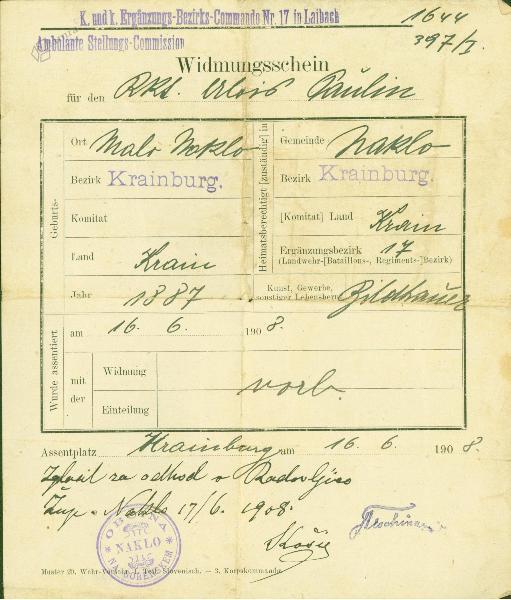 K. und k. Ergänzungs-Bezirks-Commando Nr. 17 in Laibach
1644
397/I.
Ambulante Stellungs-Commission
Widmungsschein
für den Rkt. Alois Paulin
Geburts-
Ort Malo Naklo
Bezirk Krainburg.
Komitat
Land Krain
Jahr 1887
Heimatsberechtigt [zuständig] in
Gemeinde Naklo
Bezirk Krainburg.
[Komitat] Land Krain
Ergänzungsbezirk 17
(Landwehr-[Bataillons-, Regiments-]Bezirk)
Kunst, Gewerbe,
sonstiger Lebensberuf Bildhauer
Wurde assentiert
am 16. 6. 1908.
mit der
Widmung
Einteilung
vorb.
Assentplatz Krainburg am 16. 6. 1908.
Zglasil za odhod v Radovljico
Žup. Naklo 17/6. 1908.
OBČINA
NAKLO
NA GORENSKEM
Muster 20, Wehr-Vorschr. I. Teil. Slovenisch. — 3. Korpskommando.